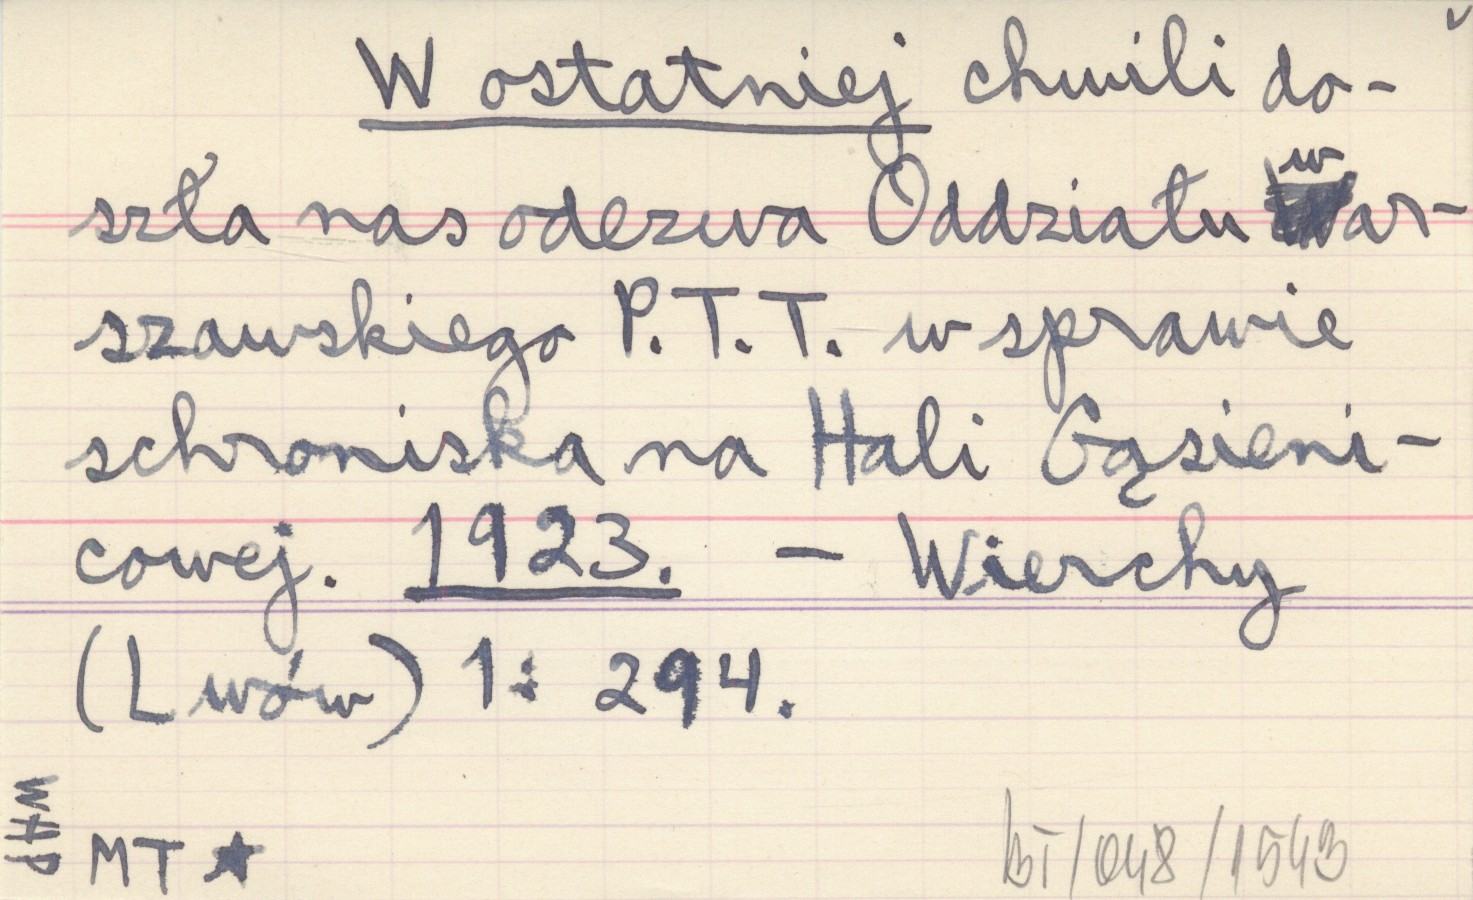 W ostatniej chwili do-
szła nas odezwa Oddziału war-
szawskiego P.T.T. w sprawie
schroniska na Hali Gąsieni-
cowej. 1923. – Wierchy
(Lwów) 1: 294.
WHP
MT ★
BT/048/1543